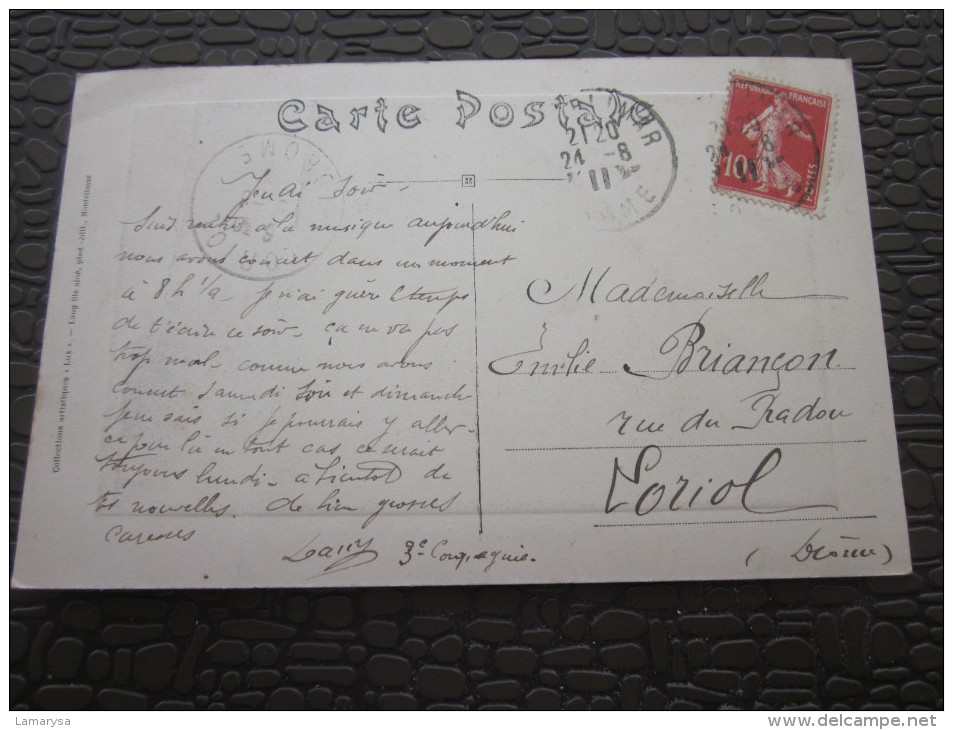 Carte Postale
REPUBLIQUE FRANÇAISE
10
POSTES
MAR
21 20
24 -8
11
DROME
Collections artistiques « Lux ». — Lang fils aîné, phot.-édit., Montélimar
Jeudi soir -
Suis rentré à la musique aujourd'hui
nous avons concert dans un moment
à 8 h 1/2 je n'ai guère le temps
de t'écrire ce soir - ça ne va pas
trop mal - comme nous avons
concert samedi soir et dimanche
je ne sais si je pourrais y aller -
ce jour là en tout cas ce serait
toujours lundi - à bientôt de
tes nouvelles. de bien grosses
caresses
3e Compagnie.
Mademoiselle
Emilie Briançon
rue du Radou
Loriol
(Drôme)
Lamarysa
www.delcampe.net